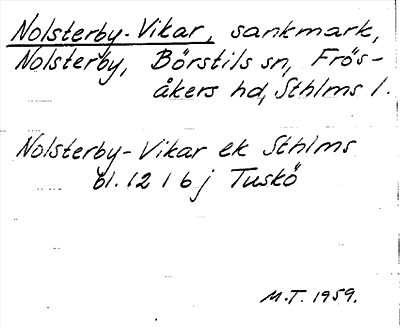 Nolsterby-Vikar, sankmark,
Nolsterby, Börstils sn, Frös-
åkers hd, Sthlms l.
Nolsterby-Vikar ek Sthlms
bl. 12 1 6 j Tuskö
M.T. 1959.